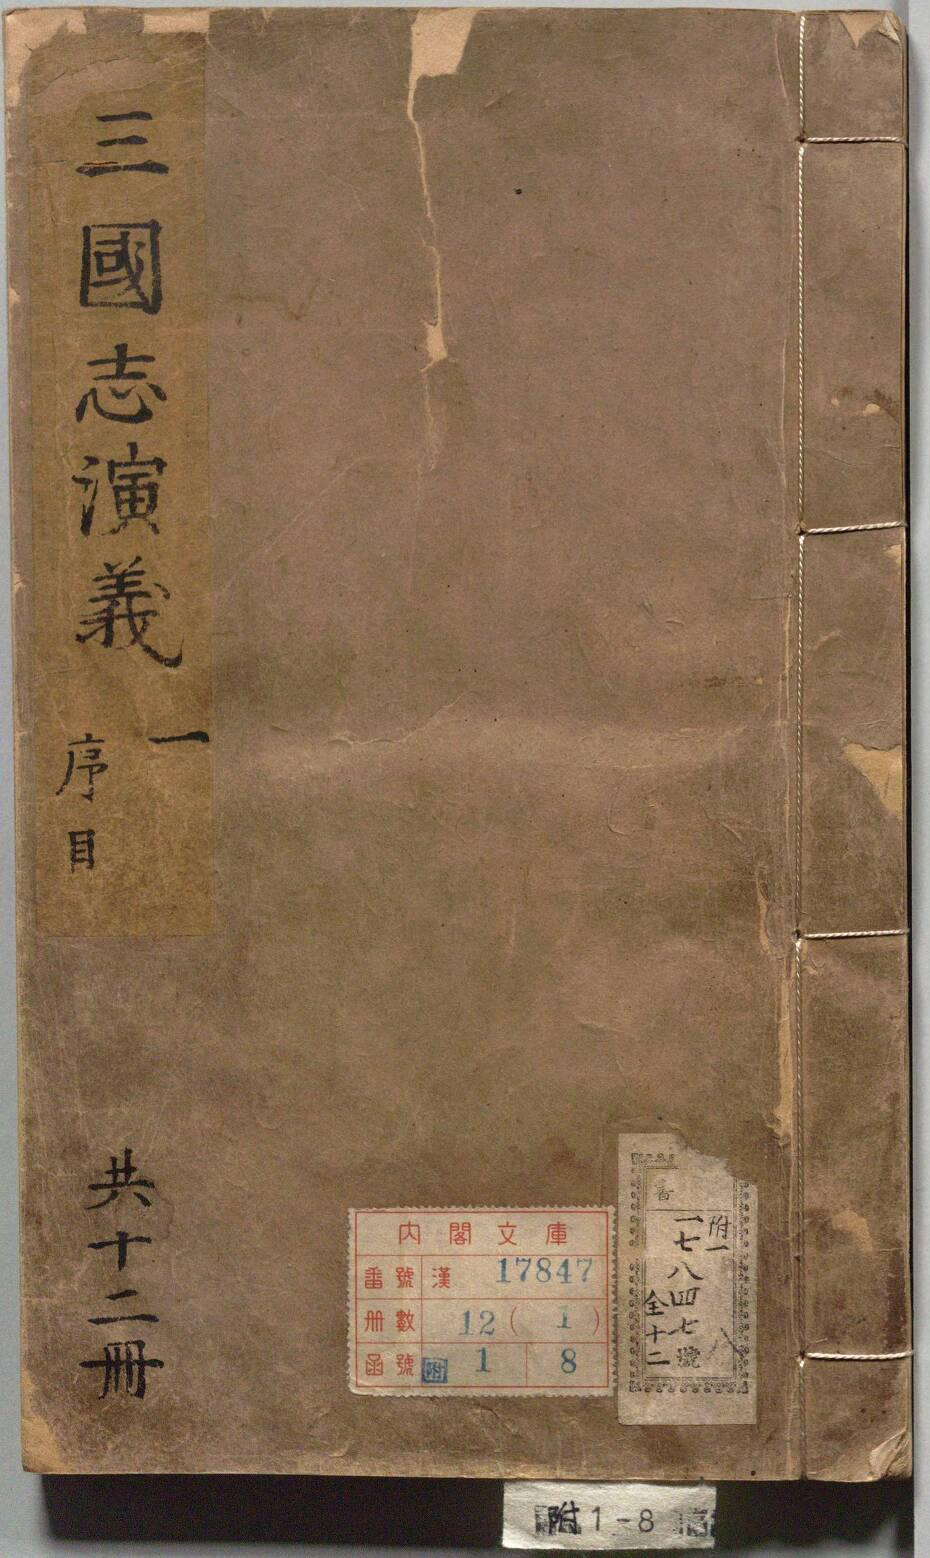 三國志演義
一
序目
共十二冊
内閣文庫
番號 漢 17847
冊數 12 ( 1 )
函號 附 1 8
番
附一
一七八四七號
全十二
附 1-8